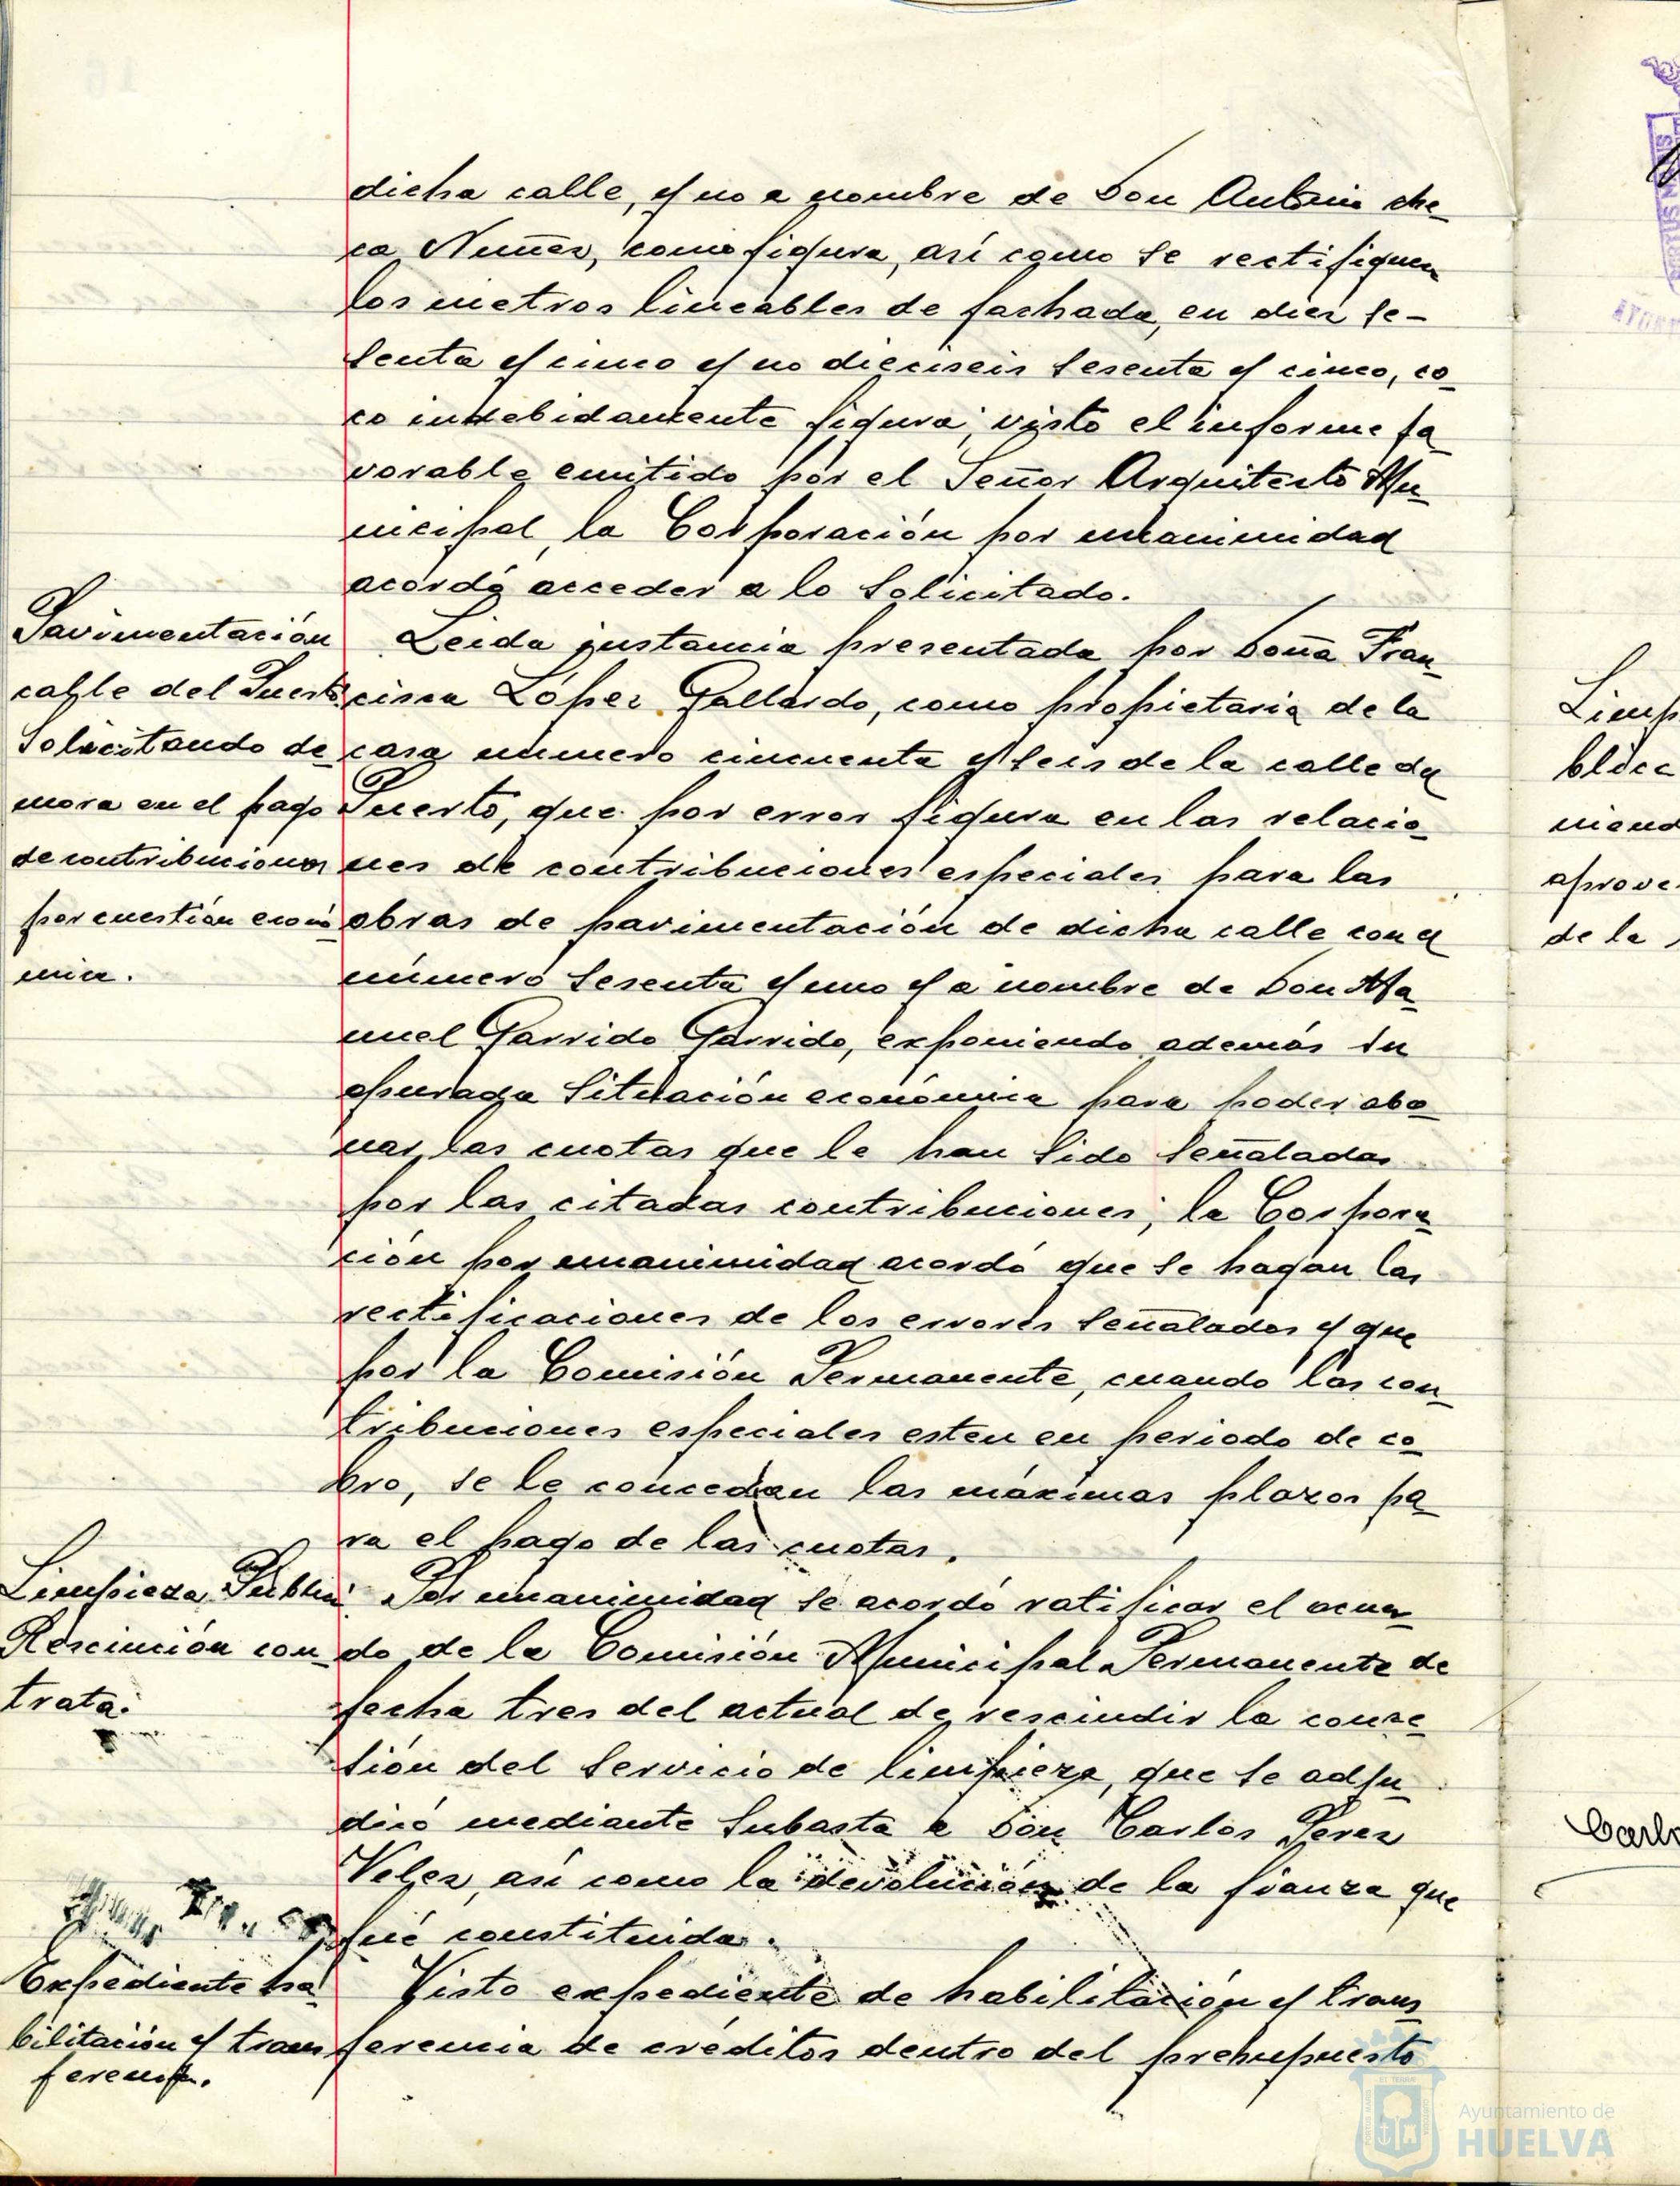 dicha calle, y no a nombre de Don Antonio che
ca Nuñez, como figura, así como se rectifiquen
los metros lineables de fachada, en diez se-
senta y cinco y no dieciseis sesenta y cinco, co
co indebidamente figura; visto el informe fa
vorable emitido por el Señor Arquitecto Mu
nicipal, la Corporación por unanimidad
acordó acceder a lo solicitado.
Pavimentación
calle del Puerto
Solicitando de
mora en el pago
de contribuciones
por cuestión econó
mica.
Leida instancia presentada por Doña Fran
cisca López Gallardo, como propietaria de la
casa número cincuenta y seis de la calle del
Puerto, que por error figura en las relacio
nes de contribuciones especiales para las
obras de pavimentación de dicha calle con el
número sesenta y uno y a nombre de Don Ma
nuel Garrido Garrido, exponiendo además su
apurada situación económica para poder abo
nar las cuotas que le han sido señaladas
por las citadas contribuciones; la Corpora
ción por unanimidad acordó que se hagan las
rectificaciones de los errores señalados y que
por la Comisión Permanente, cuando las con
tribuciones especiales esten en periodo de co
bro, se le concedan las máximas plazos pa
ra el pago de las cuotas.
Limpieza Public
Rescinción con
trata.
Por unanimidad se acordó ratificar el acuer
do de la Comisión Municipal Permanente de
fecha tres del actual de rescindir la conce
sión del servicio de limpieza, que se adju
dicó mediante subasta a Don Carlos Perez
Velez, así como la devolución de la fianza que
fué constituida.
Expediente ha
bilitación y trans
ferencia.
Visto expediente de habilitación y trans
ferencia de créditos dentro del presupuesto
Limp
bléce
niend
aprove
de la
Carlo
Ayuntamiento de
HUELVA